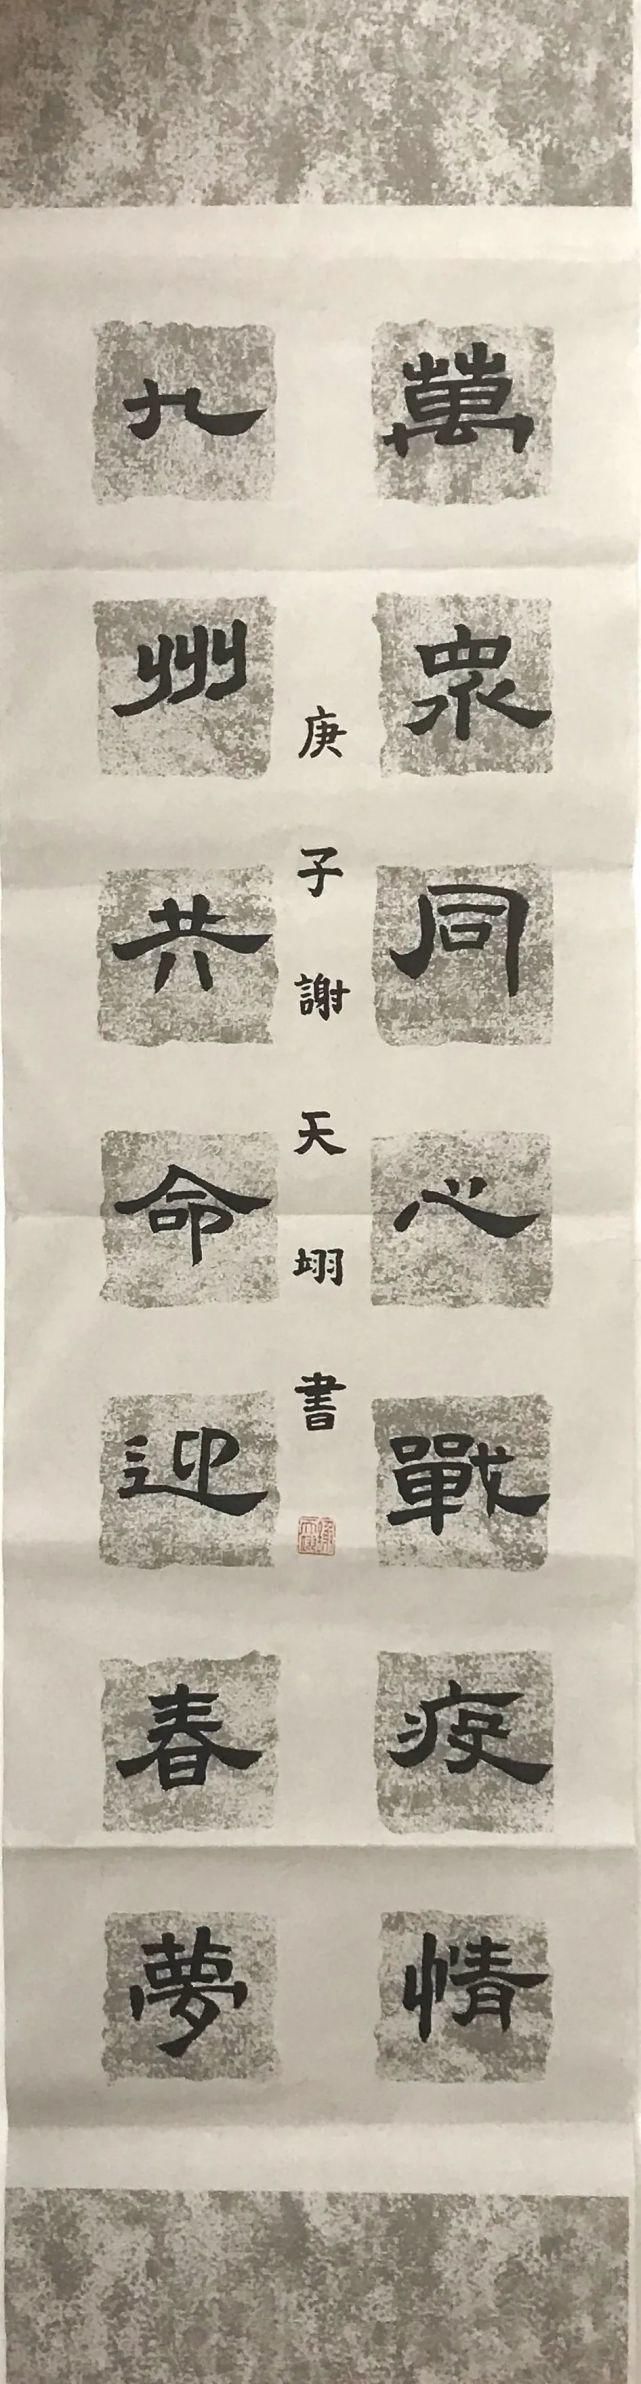 萬衆同心戰疫情
九州共命迎春夢
庚子謝天翊書